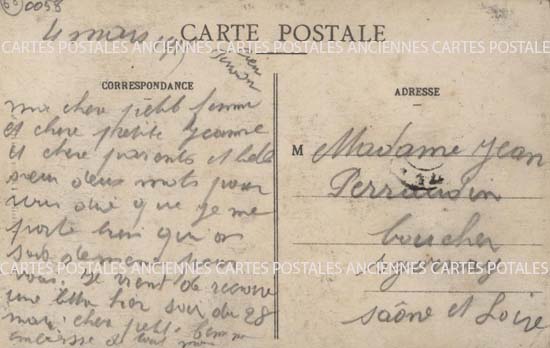 0058
4 mars
CARTE POSTALE
CARTES POSTALES ANCIENNES CARTES POSTALES ANCIENNES CARTES POSTALES
CORRESPONDANCE
ma cher petit femme
et chere petite Jeanne
et chere parents et belle
soeur deux mots pour
vous dire que je me
porte bien qu'on
soit de meme pour
vous. Je vient de recevoir
une lettre hier soir du 28
mon cher petit femme
embrasse
ADRESSE
M Madame Jean
Perraudin
boucher
saône et Loire
CARTES POSTALES ANCIENNES CARTES POSTALES ANCIENNES CARTES POSTALES